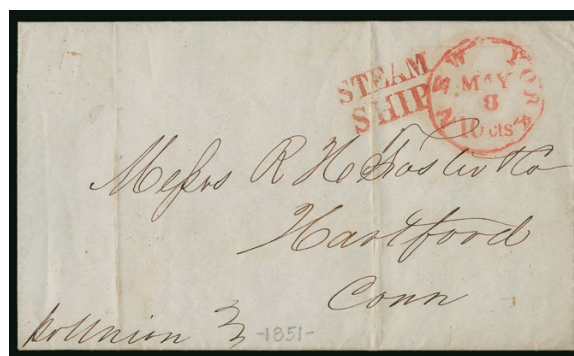 STEAM
SHIP
NEW YORK
MAY
8
10 cts
Messrs R H Foster & Co
Hartford
Conn
Union
-1851-